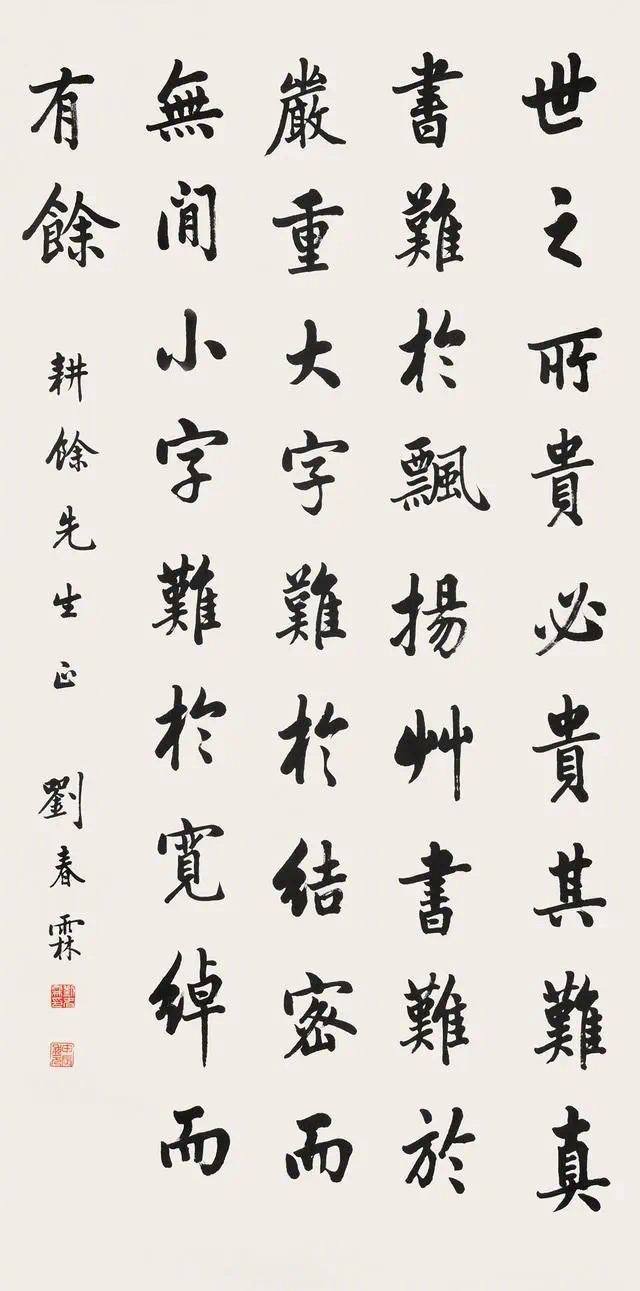 世之所貴必貴其難真
書難於飄揚艸書難於
嚴重大字難於結密而
無閒小字難於寬綽而
有餘
耕餘先生正
劉春霖